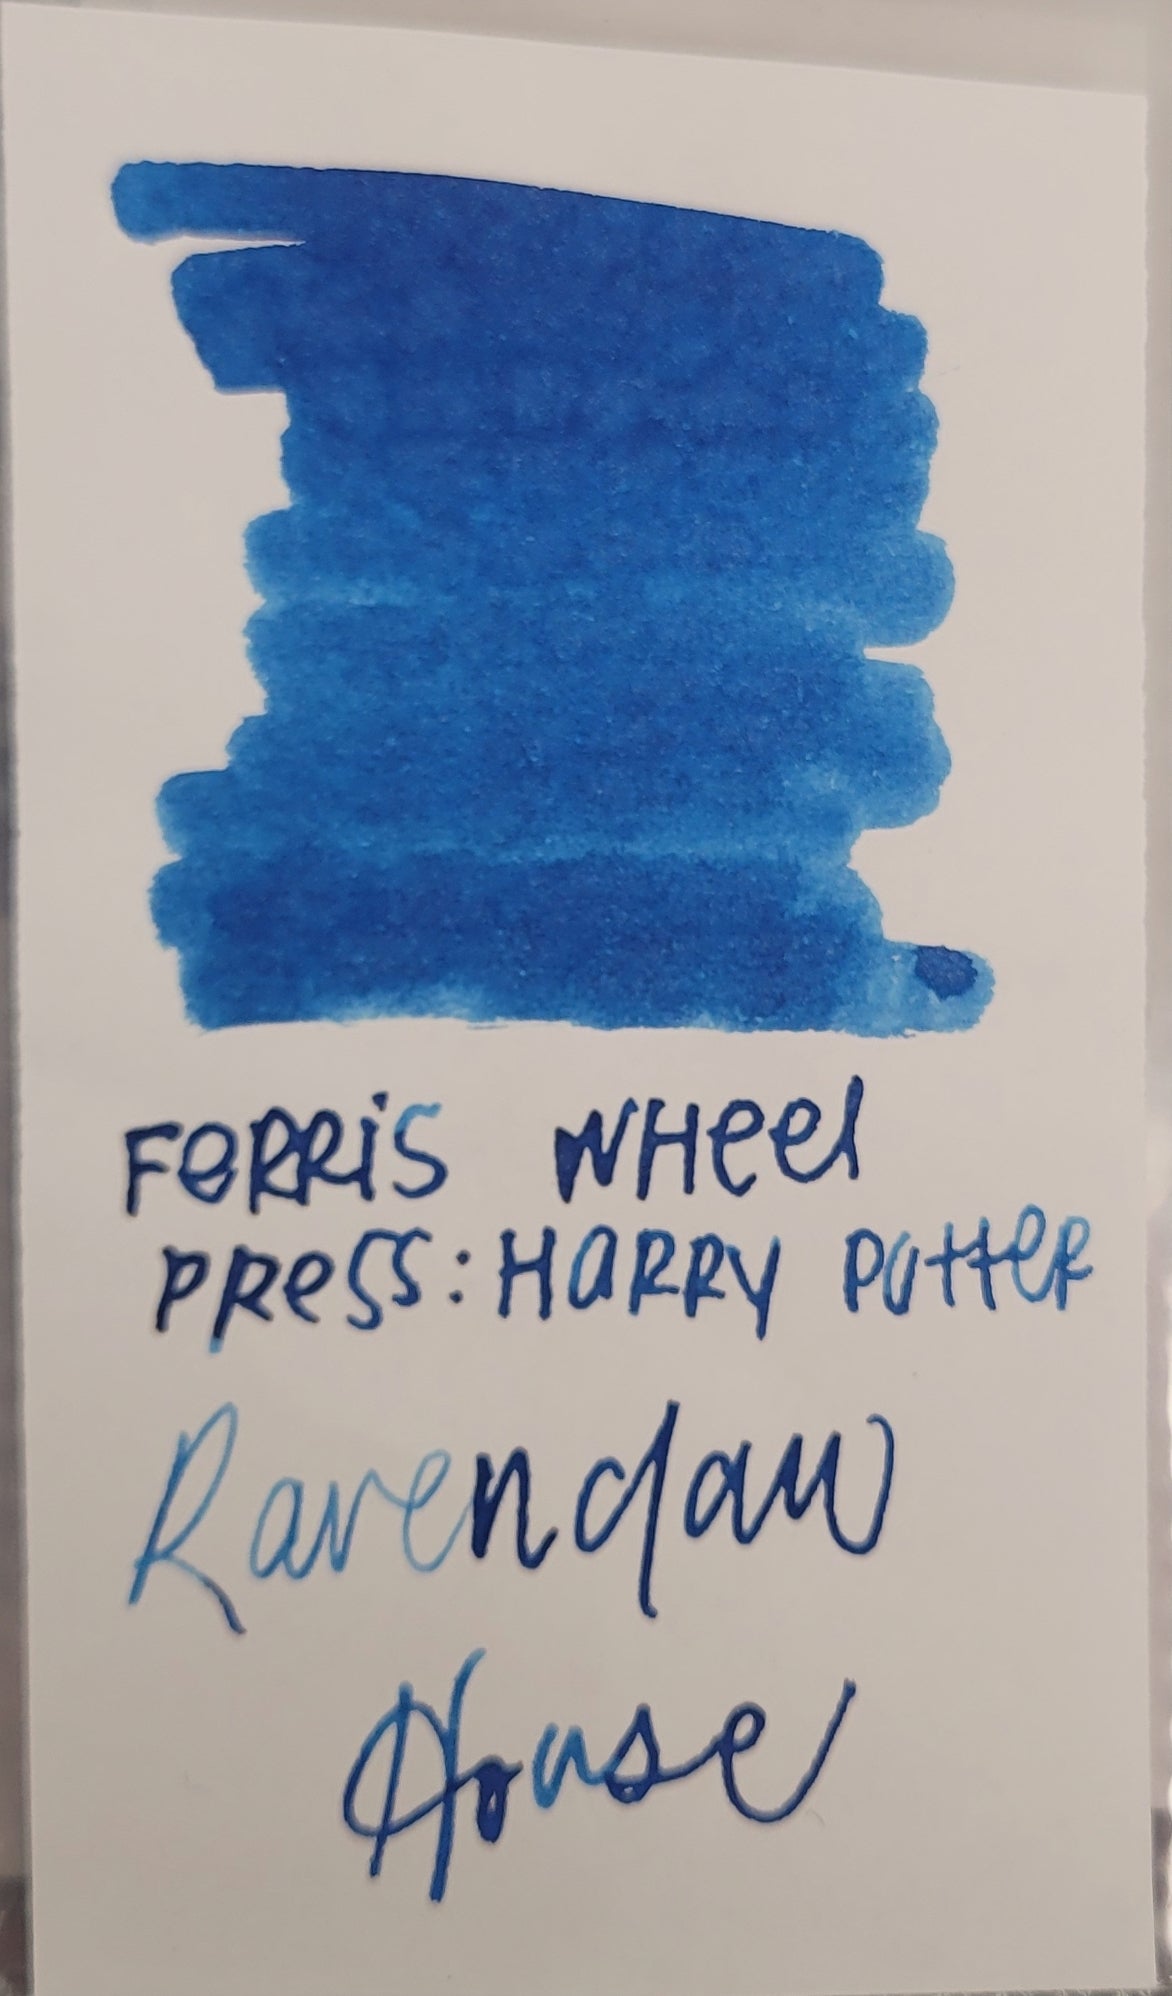 FeRRiS WHeel
PReSS: HaRRY PotteR
Ravenclaw
House